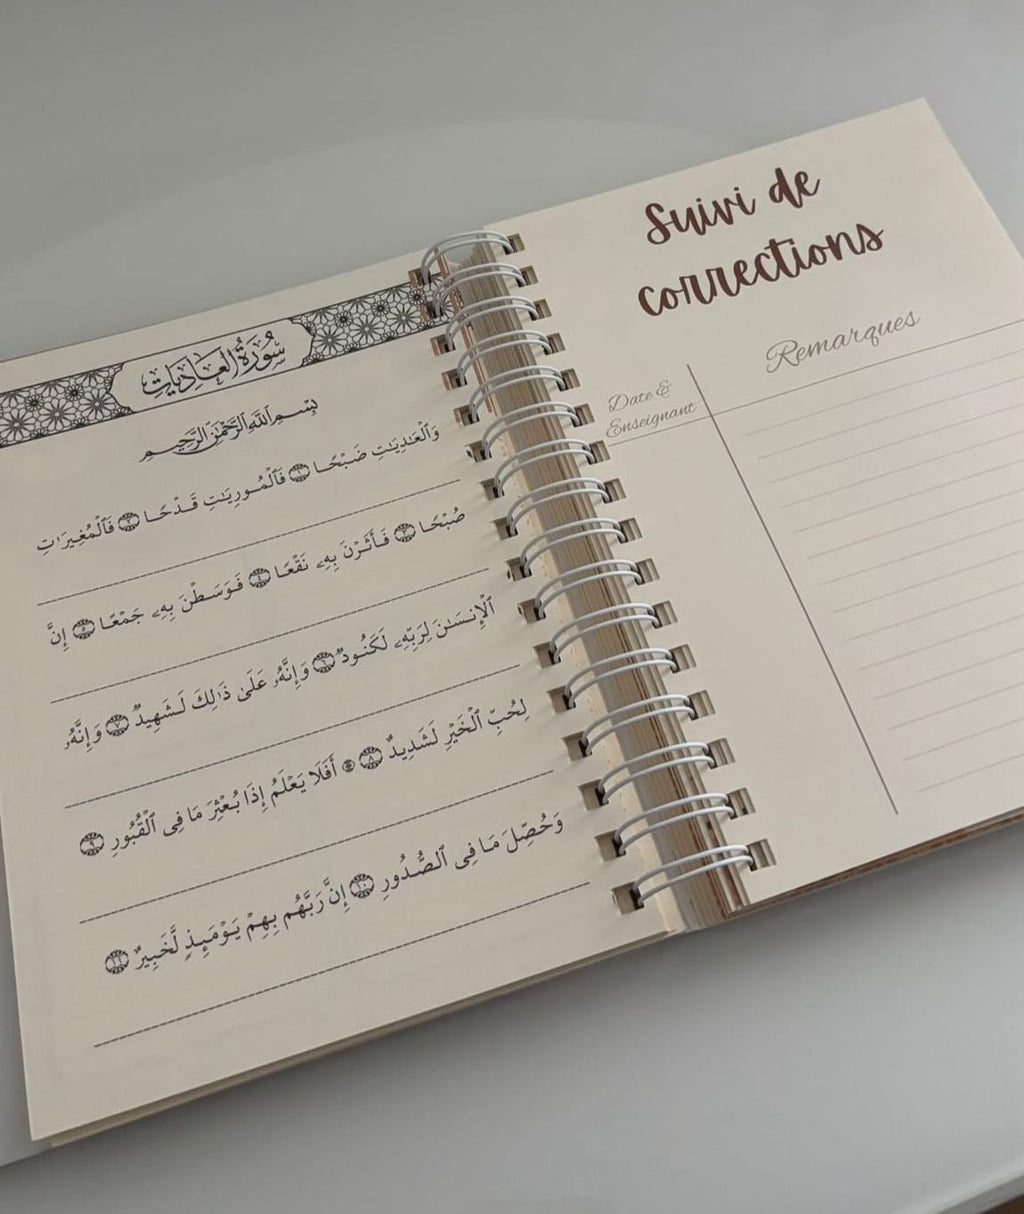 سُورَةُ العَادِيَاتِ
بِسْمِ ٱللَّهِ ٱلرَّحْمَٰنِ ٱلرَّحِيمِ
وَٱلْعَٰدِيَٰتِ ضَبْحًا ١ فَٱلْمُورِيَٰتِ قَدْحًا ٢ فَٱلْمُغِيرَٰتِ
صُبْحًا ٣ فَأَثَرْنَ بِهِۦ نَقْعًا ٤ فَوَسَطْنَ بِهِۦ جَمْعًا ٥ إِنَّ
ٱلْإِنسَٰنَ لِرَبِّهِۦ لَكَنُودٌ ٦ وَإِنَّهُۥ عَلَىٰ ذَٰلِكَ لَشَهِيدٌ ٧ وَإِنَّهُۥ
لِحُبِّ ٱلْخَيْرِ لَشَدِيدٌ ٨ ۞ أَفَلَا يَعْلَمُ إِذَا بُعْثِرَ مَا فِى ٱلْقُبُورِ ٩
وَحُصِّلَ مَا فِى ٱلصُّدُورِ ١٠ إِنَّ رَبَّهُم بِهِمْ يَوْمَئِذٍ لَّخَبِيرٌ ١١
Suivi de
corrections
Date &
Enseignant
Remarques